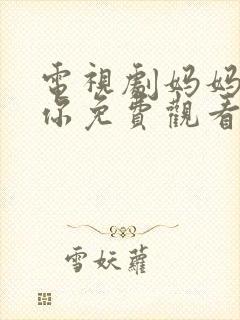 電視劇妈妈
你免費觀看
雪妖蘿